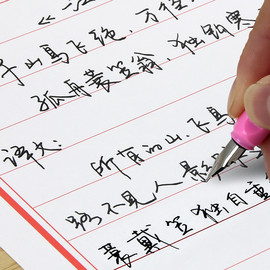 《江
千山鸟飞绝，万径
孤舟蓑笠翁，独钓寒
译文：
所有的山，飞鸟
路不见人影
蓑戴笠独自